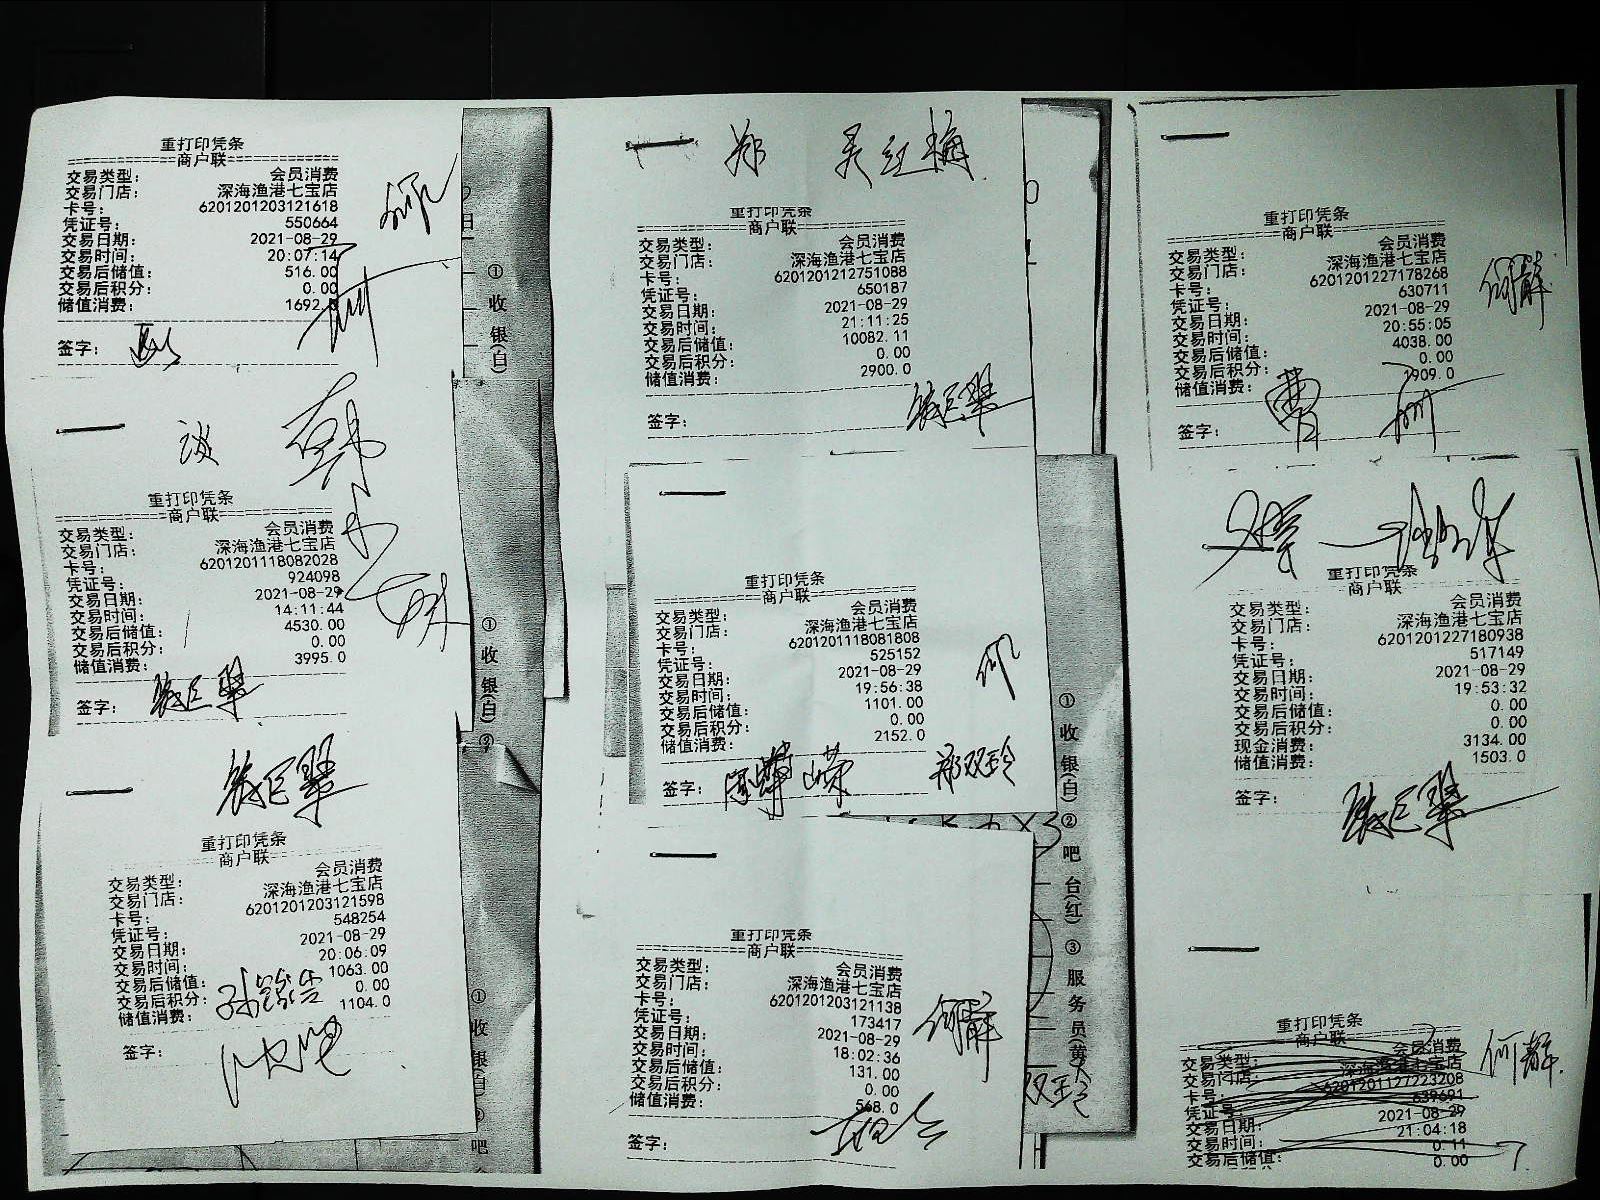 重打印凭条
商户联
交易类型： 会员消费
交易门店： 深海渔港七宝店
卡号： 6201201203121618
凭证号： 550664
交易日期： 2021-08-29
交易时间： 20:07:14
交易后储值： 516.00
交易后积分： 0.00
储值消费： 1692.0
签字：
谈
重打印凭条
商户联
交易类型 会员消费
交易门店： 深海渔港七宝店
卡号： 6201201118082028
凭证号： 924098
交易日期： 2021-08-29
交易时间： 14:11:44
交易后储值： 4530.00
交易后积分： 0.00
储值消费： 3995.0
签字：
重打印凭条
商户联
交易类型： 会员消费
交易门店： 深海渔港七宝店
卡号： 6201201203121598
凭证号： 548254
交易日期： 2021-08-29
交易时间： 20:06:09
交易后储值： 1063.00
交易后积分： 0.00
储值消费： 1104.0
签字：
①收银(白)
①收银(白)②
①收银(白)②吧
郑 吴红梅
重打印凭条
商户联
交易类型： 会员消费
交易门店： 深海渔港七宝店
卡号： 6201201212751088
凭证号： 650187
交易日期： 2021-08-29
交易时间： 21:11:25
交易后储值： 10082.11
交易后积分： 0.00
储值消费： 2900.0
签字：
重打印凭条
商户联
交易类型： 会员消费
交易门店： 深海渔港七宝店
卡号： 6201201118081808
凭证号： 525152
交易日期： 2021-08-29
交易时间： 19:56:38
交易后储值： 1101.00
交易后积分： 0.00
储值消费： 2152.0
签字： 郑双玲
重打印凭条
商户联
交易类型： 会员消费
交易门店： 深海渔港七宝店
卡号： 6201201203121138
凭证号： 173417
交易日期： 2021-08-29
交易时间： 18:02:36
交易后储值： 131.00
交易后积分： 0.00
储值消费： 568.0
何静
签字：
①收银(白)②吧台(红)③服务员(黄)
双玲
重打印凭条
商户联
交易类型： 会员消费
交易门店： 深海渔港七宝店
卡号： 6201201227178268
凭证号： 630711
交易日期： 2021-08-29
交易时间： 20:55:05
交易后储值： 4038.00
交易后积分： 0.00
储值消费： 1909.0
何静
签字： 曹
重打印凭条
商户联
交易类型： 会员消费
交易门店： 深海渔港七宝店
卡号： 6201201227180938
凭证号： 517149
交易日期： 2021-08-29
交易时间： 19:53:32
交易后储值： 0.00
交易后积分： 0.00
现金消费： 3134.00
储值消费： 1503.0
签字：
重打印凭条
商户联
交易类型： 会员消费
交易门店： 深海渔港七宝店
卡号： 6201201127223208
凭证号： 639691
交易日期： 2021-08-29
交易时间： 21:04:18
交易后储值： 0.11
0.00
何静